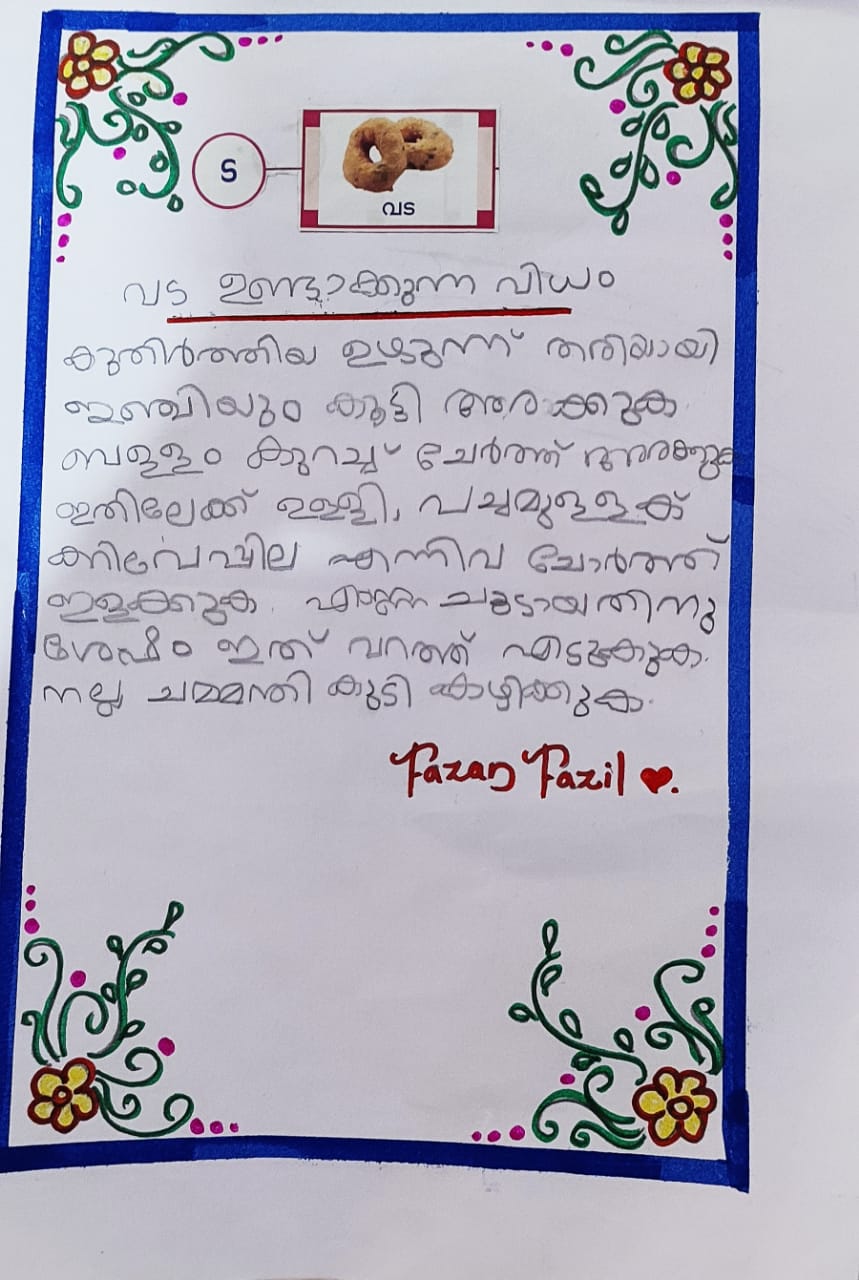 ട
വട
വട ഉണ്ടാക്കുന്ന വിധം
കുതിർത്തിയ ഉഴുന്ന് തരിയായി
ഇഞ്ചിയും കൂട്ടി അരക്കുക
ബള്ളം കുറച്ച് ചേർത്ത് അരക്കുക
ഇതിലേക്ക് ഉള്ളി, പച്ചമുളളക്
കറിവേപ്പില എന്നിവ ചോർത്ത്
ഇളക്കുക. എണ്ണ ചൂടായതിനു
ശേഷം ഇത് വറത്ത് എടുകുക.
നല്ല ചമ്മന്തി കുടി കഴിക്കുക.
Fazan Fazil